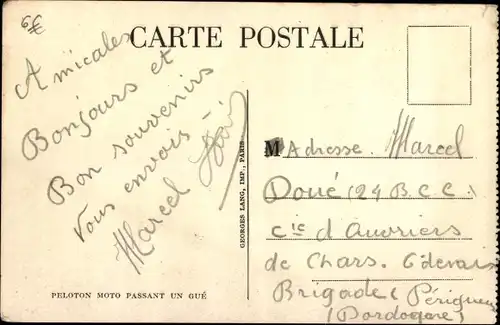 6€
CARTE POSTALE
Amicales
Bonjours et
Bon souvenirs
Vous envois -
Marcel
GEORGES LANG, IMP., PARIS
PELOTON MOTO PASSANT UN GUÉ
M Adresse. Marcel
Doué (24 B.C.C.)
Cie d'Ouvriers
de Chars.
Brigade (Périgueux
(Dordogne)